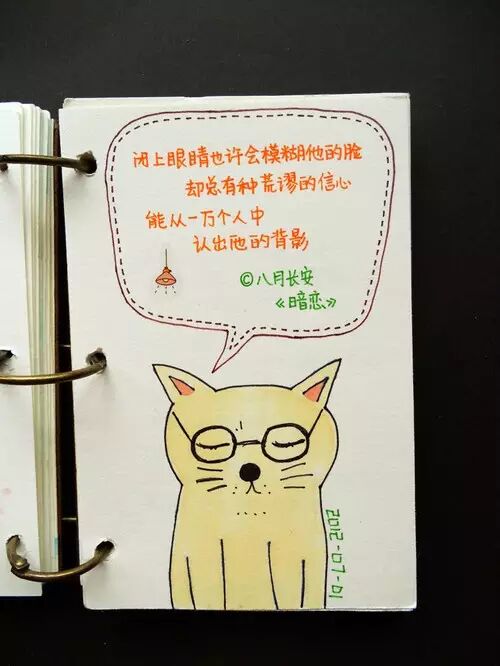 闭上眼睛也许会模糊他的脸
却总有种荒谬的信心
能从一万个人中
认出他的背影
©八月长安
《暗恋》
2012-07-01